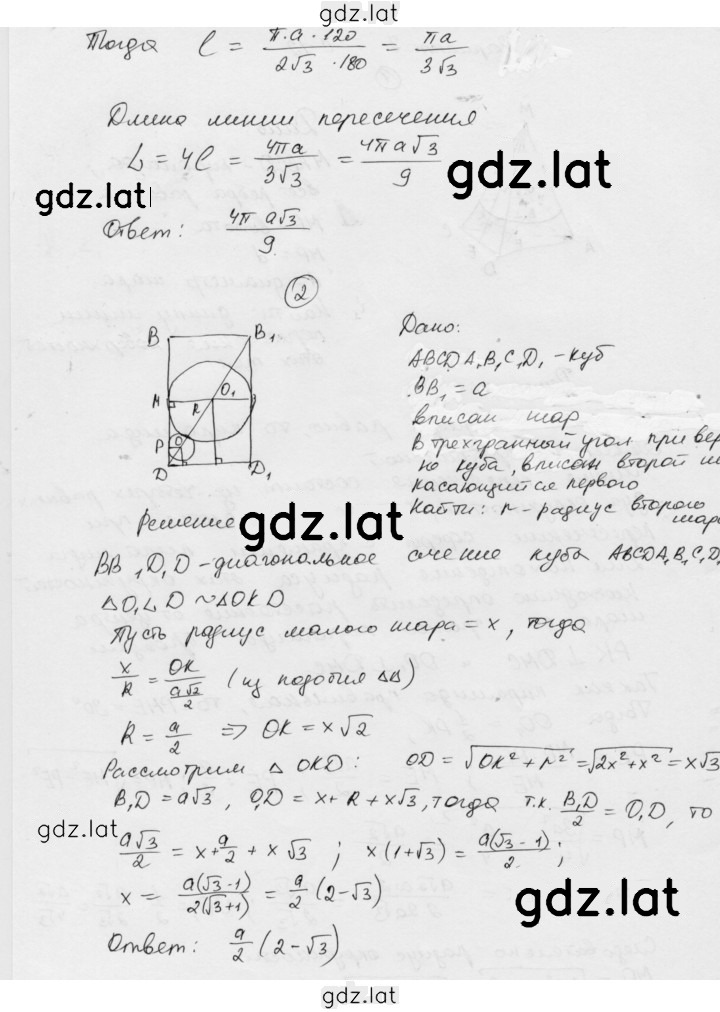 gdz.lat
Тогда l = π·a·120 / 2√3 ·180 = πa / 3√3
Длина линии пересечения
L = 4l = 4πa / 3√3 = 4πa√3 / 9
gdz.lat
gdz.lat
Ответ: 4π a√3 / 9
2
B B₁
M R O₁
P O
D D₁
Дано:
ABCDA₁B₁C₁D₁ - куб
BB₁ = a
вписан шар
В трехгранный угол при вер
но куба, вписан второй ш
касающийся первого
Найти: r - радиус второго
шара
Решение
gdz.lat
BB₁D₁D - диагональное сечение куба ABCDA₁B₁C₁D₁
△O₁LD ~ △OKD
Пусть радиус малого шара = x, тогда
x/R = OK / (a√2/2) (из подобия △△)
R = a/2 ⇒ OK = x√2
Рассмотрим △ OKD: OD = √OK² + r² = √2x² + x² = x√3
B₁D = a√3, O₁D = x + R + x√3, тогда т.к. B₁D/2 = O₁D, то
gdz.lat
a√3/2 = x + a/2 + x√3 ; x(1+√3) = a(√3 - 1)/2 ;
x = a(√3-1) / 2(√3+1) = a/2 (2-√3)
gdz.lat
Ответ: a/2 (2-√3)
gdz.lat